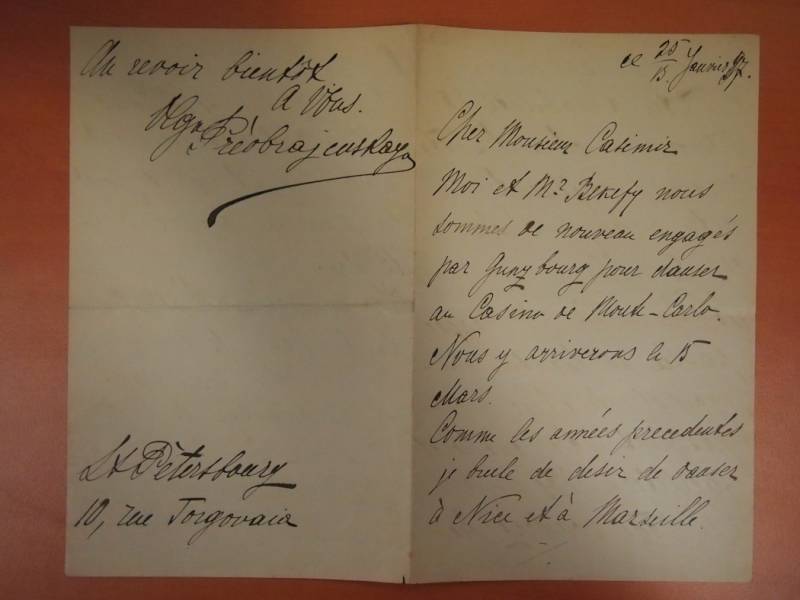 ce 25/13. Janvier 97.
Cher Monsieur Casimir
Moi et Mr Bekefy nous
sommes de nouveau engagés
par Gunzbourg pour danser
au Casino de Monte-Carlo.
Nous y arriverons le 15
Mars.
Comme les années precedentes
je brule de desir de danser
à Nice et à Marseille.
Au revoir bientôt
A Vous.
Olga
Préobrajenskaya
St Pètersbourg
10, rue Torgovaia